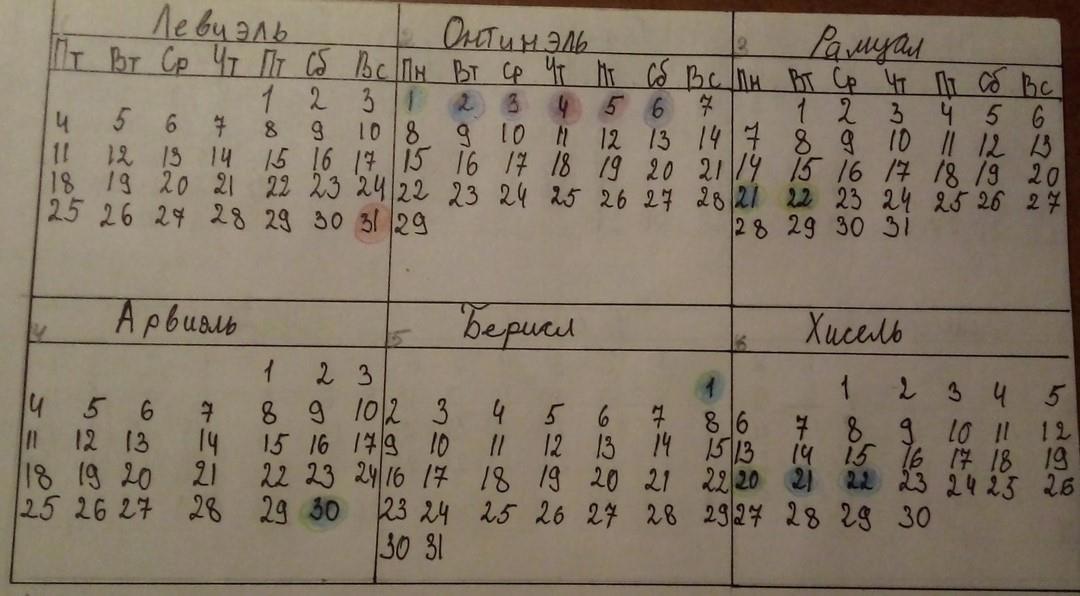 Левиэль
Пт Вт Ср Чт Пт Сб Вс
1 2 3
4 5 6 7 8 9 10
11 12 13 14 15 16 17
18 19 20 21 22 23 24
25 26 27 28 29 30 31
2 Онтинэль
Пн Вт Ср Чт Пт Сб Вс
1 2 3 4 5 6 7
8 9 10 11 12 13 14
15 16 17 18 19 20 21
22 23 24 25 26 27 28
29
3 Рамуал
Пн Вт Ср Чт Пт Сб Вс
1 2 3 4 5 6
7 8 9 10 11 12 13
14 15 16 17 18 19 20
21 22 23 24 25 26 27
28 29 30 31
4 Арвиэль
1 2 3
4 5 6 7 8 9 10
11 12 13 14 15 16 17
18 19 20 21 22 23 24
25 26 27 28 29 30
5 Бериэл
1
2 3 4 5 6 7 8
9 10 11 12 13 14 15
16 17 18 19 20 21 22
23 24 25 26 27 28 29
30 31
6 Хисель
1 2 3 4 5
6 7 8 9 10 11 12
13 14 15 16 17 18 19
20 21 22 23 24 25 26
27 28 29 30